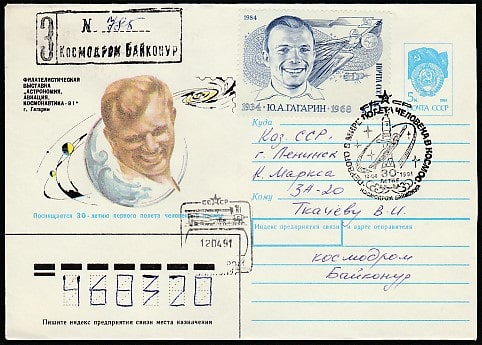 З
N 785
Космодром Байконур
ФИЛАТЕЛИСТИЧЕСКАЯ
ВЫСТАВКА
"АСТРОНОМИЯ,
АВИАЦИЯ,
КОСМОНАВТИКА-91"
г. Гагарин
1984
ПОЧТА СССР
1934 - Ю.А.ГАГАРИН - 1968
5к
ПОЧТА СССР
СССР
ПЕРВОГО В МИРЕ ПОЛЕТА ЧЕЛОВЕКА В КОСМОС
12•04 30 1991
ЛЕТИЕ
КОСМОДРОМ БАЙКОНУР
Куда Каз. ССР.
г. Ленинск
К. Маркса
3А-20
Кому Ткачеву В. И.
Посвящается 30-летию первого полета человека
СССР
120491
Индекс предприятия связи и адрес отправителя
космодром
Байконур
468320
Пишите индекс предприятия связи места назначения